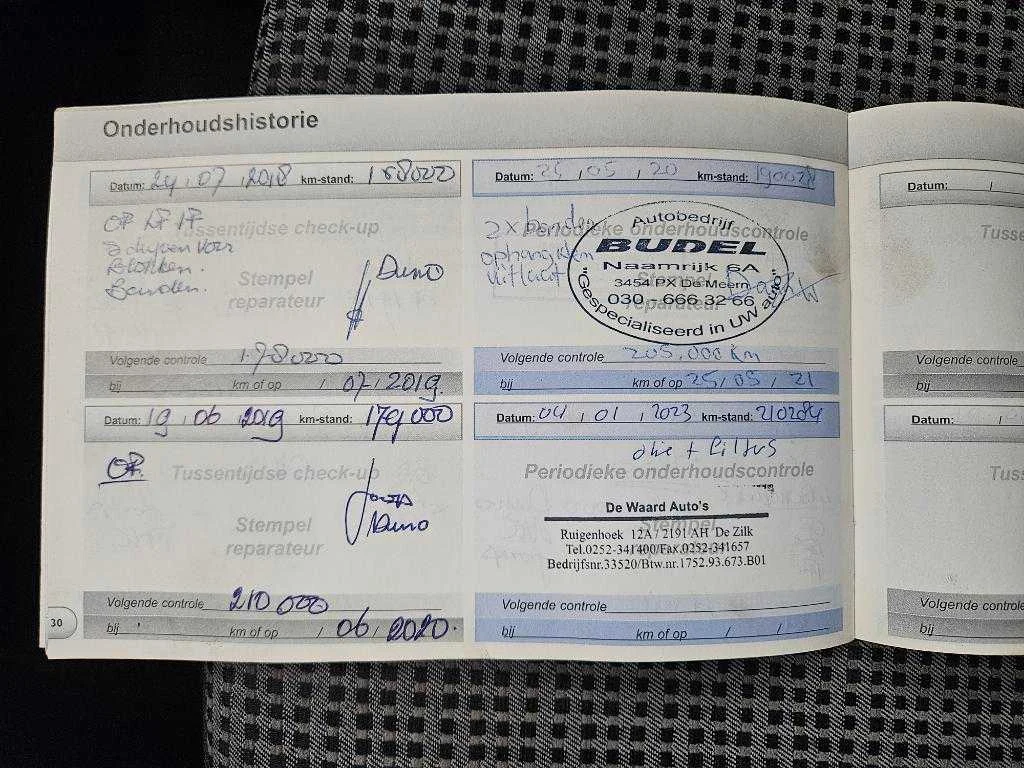 Onderhoudshistorie
Datum: 24 , 07 , 2018 km-stand: 168000
Tussentijdse check-up
Schijven Voor
Blokken.
Banden.
Stempel
reparateur
Duno
Volgende controle 178000
bij km of op / 07/2019.
Datum: 25 , 05 , 20 km-stand:
Periodieke onderhoudscontrole
2x banden
ophangen
uitlaat
Stempel
reparateur
Autobedrijf
BUDEL
Naamrijk 6A
3454 PX De Meern
030 - 666 32 66
"Gespecialiseerd in UW auto"
Volgende controle 205.000 km
bij km of op 25/05/21
Datum: 19 , 06 , 2019 km-stand: 179000
OP.
Tussentijdse check-up
Stempel
reparateur
Duno
Volgende controle 210 000
bij km of op / 06/2020.
Datum: 04 , 01 , 2023 km-stand: 210284
olie + filters
Periodieke onderhoudscontrole
De Waard Auto's
Stempel
reparateur
Ruigenhoek 12A / 2191 AH De Zilk
Tel.0252-341400/Fax.0252-341657
Bedrijfsnr.33520/Btw.nr.1752.93.673.B01
Volgende controle
bij km of op / /
30
Datum: /
Tusse
Volgende controle
bij
Datum: /
Tuss
Volgende controle
bij